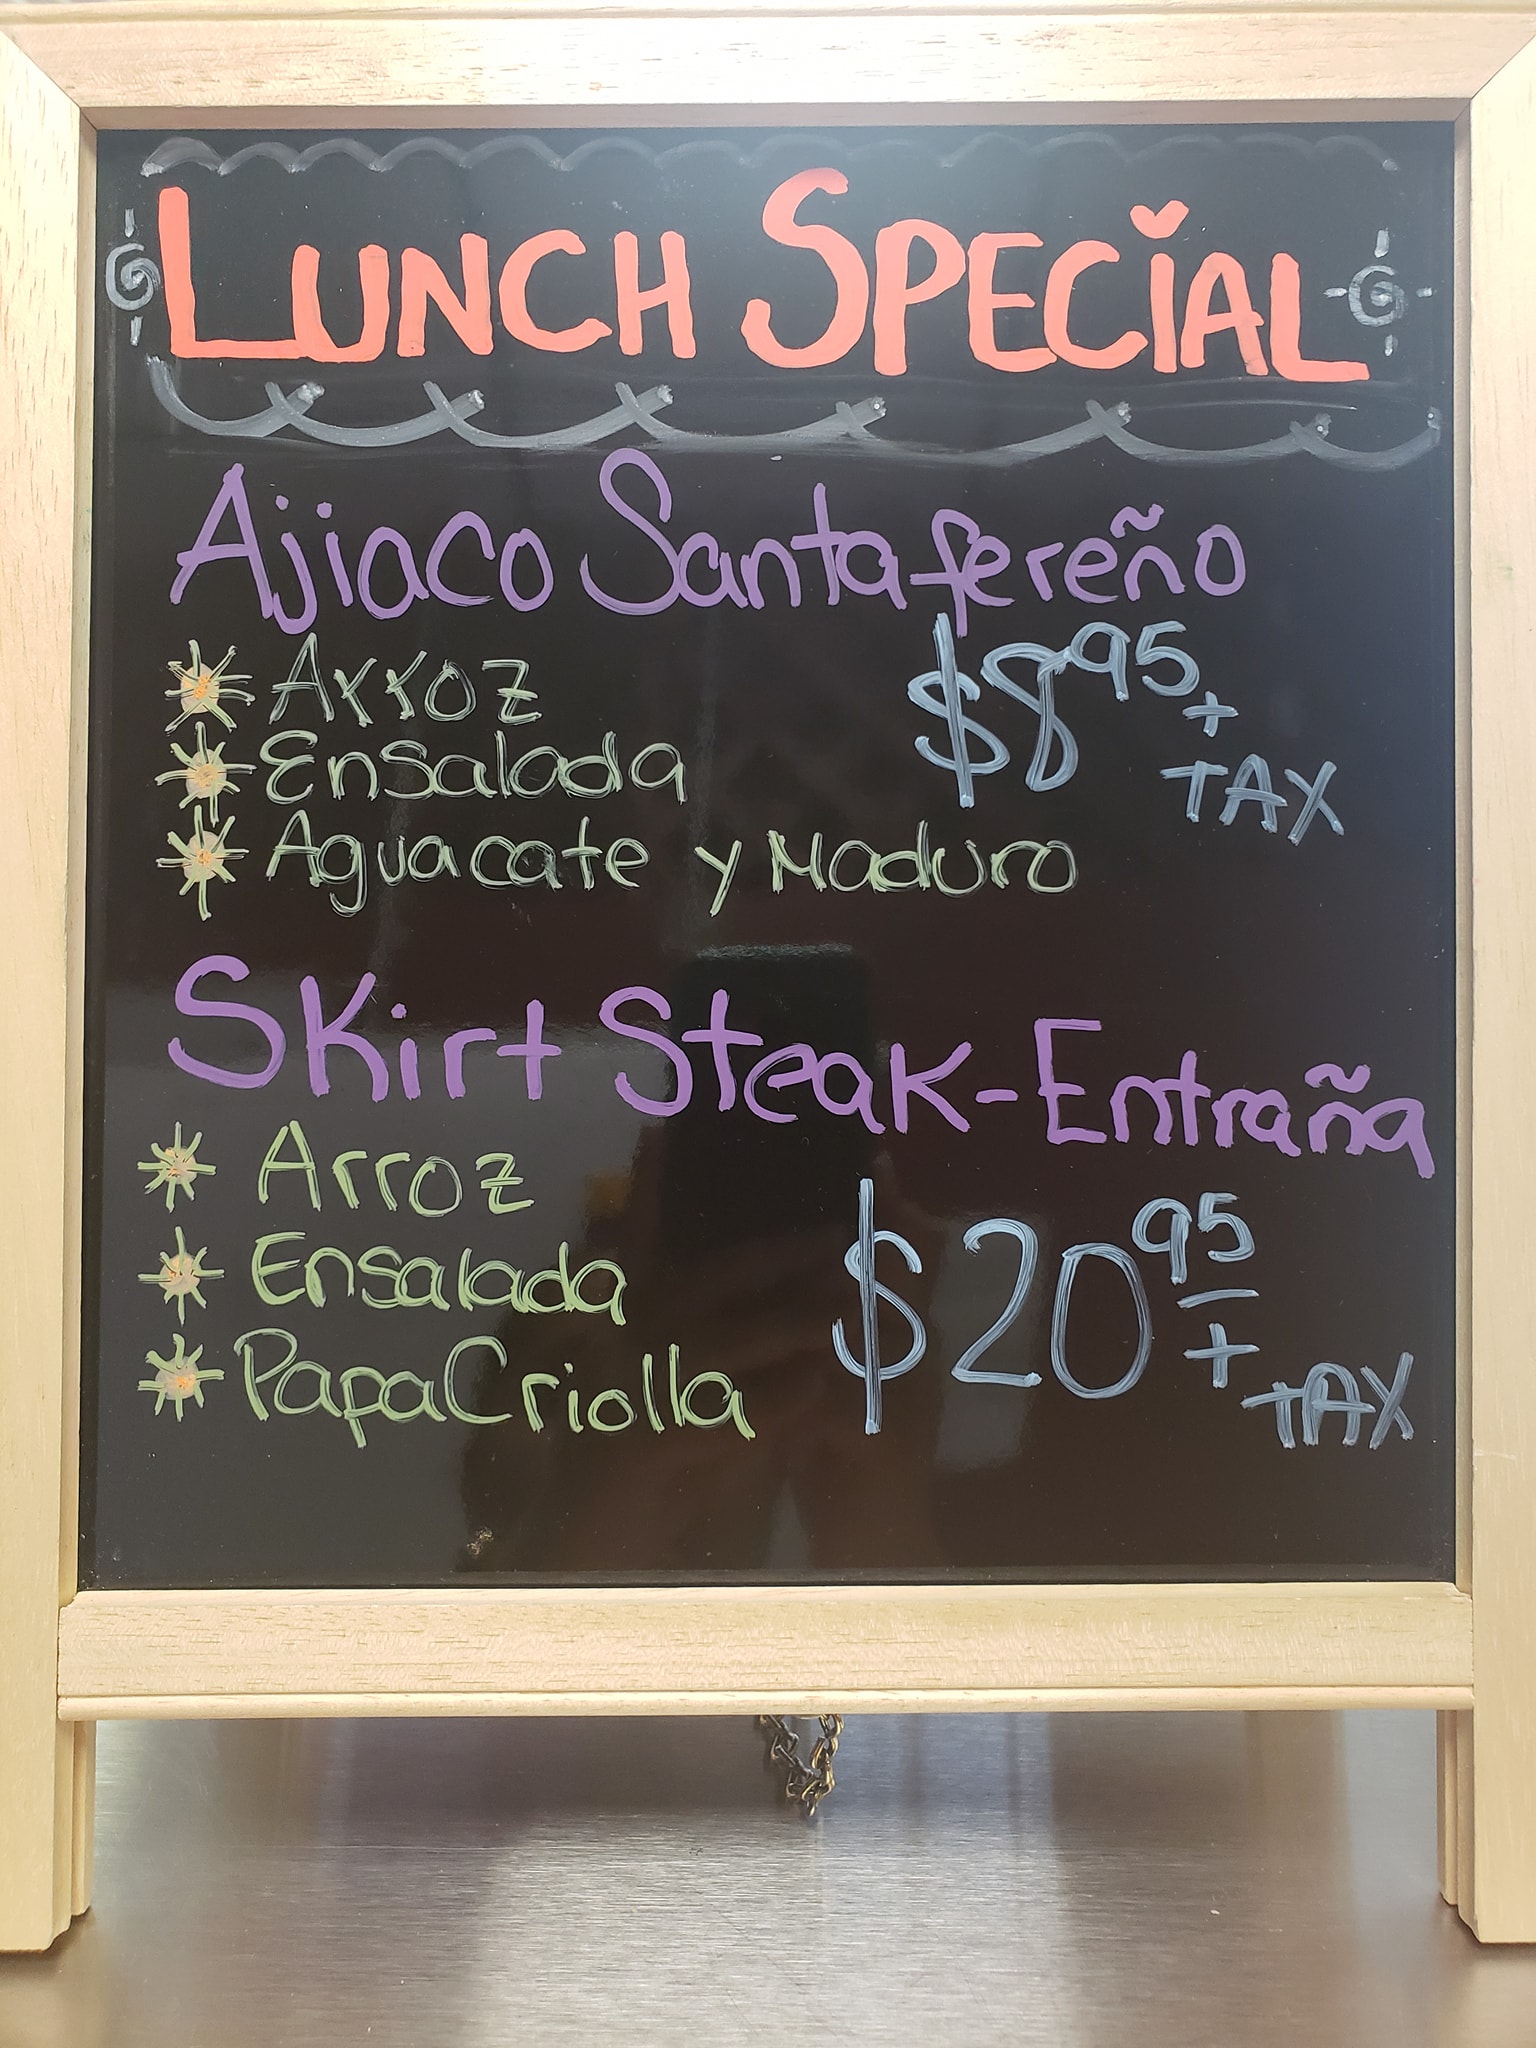 LUNCH SPECIAL
Ajiaco Santafereño
Arroz
$8.95 + TAX
Ensalada
Aguacate y Maduro
Skirt Steak - Entraña
Arroz
$20.95 + TAX
Ensalada
Papa Criolla